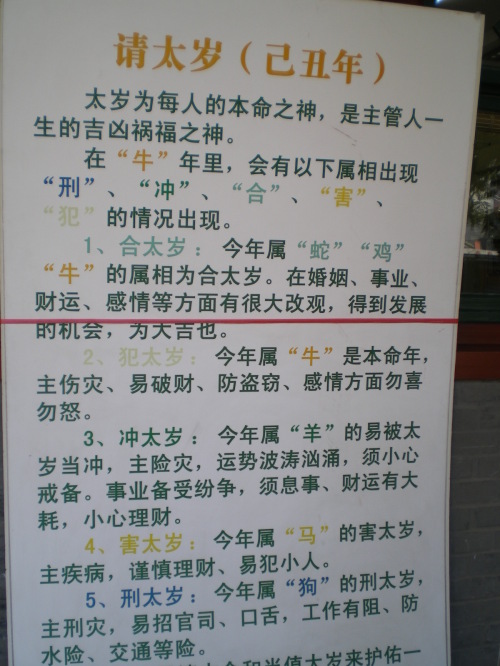 请太岁（己丑年）
太岁为每人的本命之神，是主管人一
生的吉凶祸福之神。
在“牛”年里，会有以下属相出现
“刑”、“冲”、“合”、“害”、
“犯”的情况出现。
1、合太岁：今年属“蛇”“鸡”
“牛”的属相为合太岁。在婚姻、事业、
财运、感情等方面有很大改观，得到发展
的机会，为大吉也。
2、犯太岁：今年属“牛”是本命年，
主伤灾、易破财、防盗窃、感情方面勿喜
勿怒。
3、冲太岁：今年属“羊”的易被太
岁当冲，主险灾，运势波涛汹涌，须小心
戒备。事业备受纷争，须息事、财运有大
耗，小心理财。
4、害太岁：今年属“马”的害太岁，
主疾病，谨慎理财、易犯小人。
5、刑太岁：今年属“狗”的刑太岁，
主刑灾，易招官司、口舌，工作有阻、防
水险、交通等险。
和当值太岁来护佑一